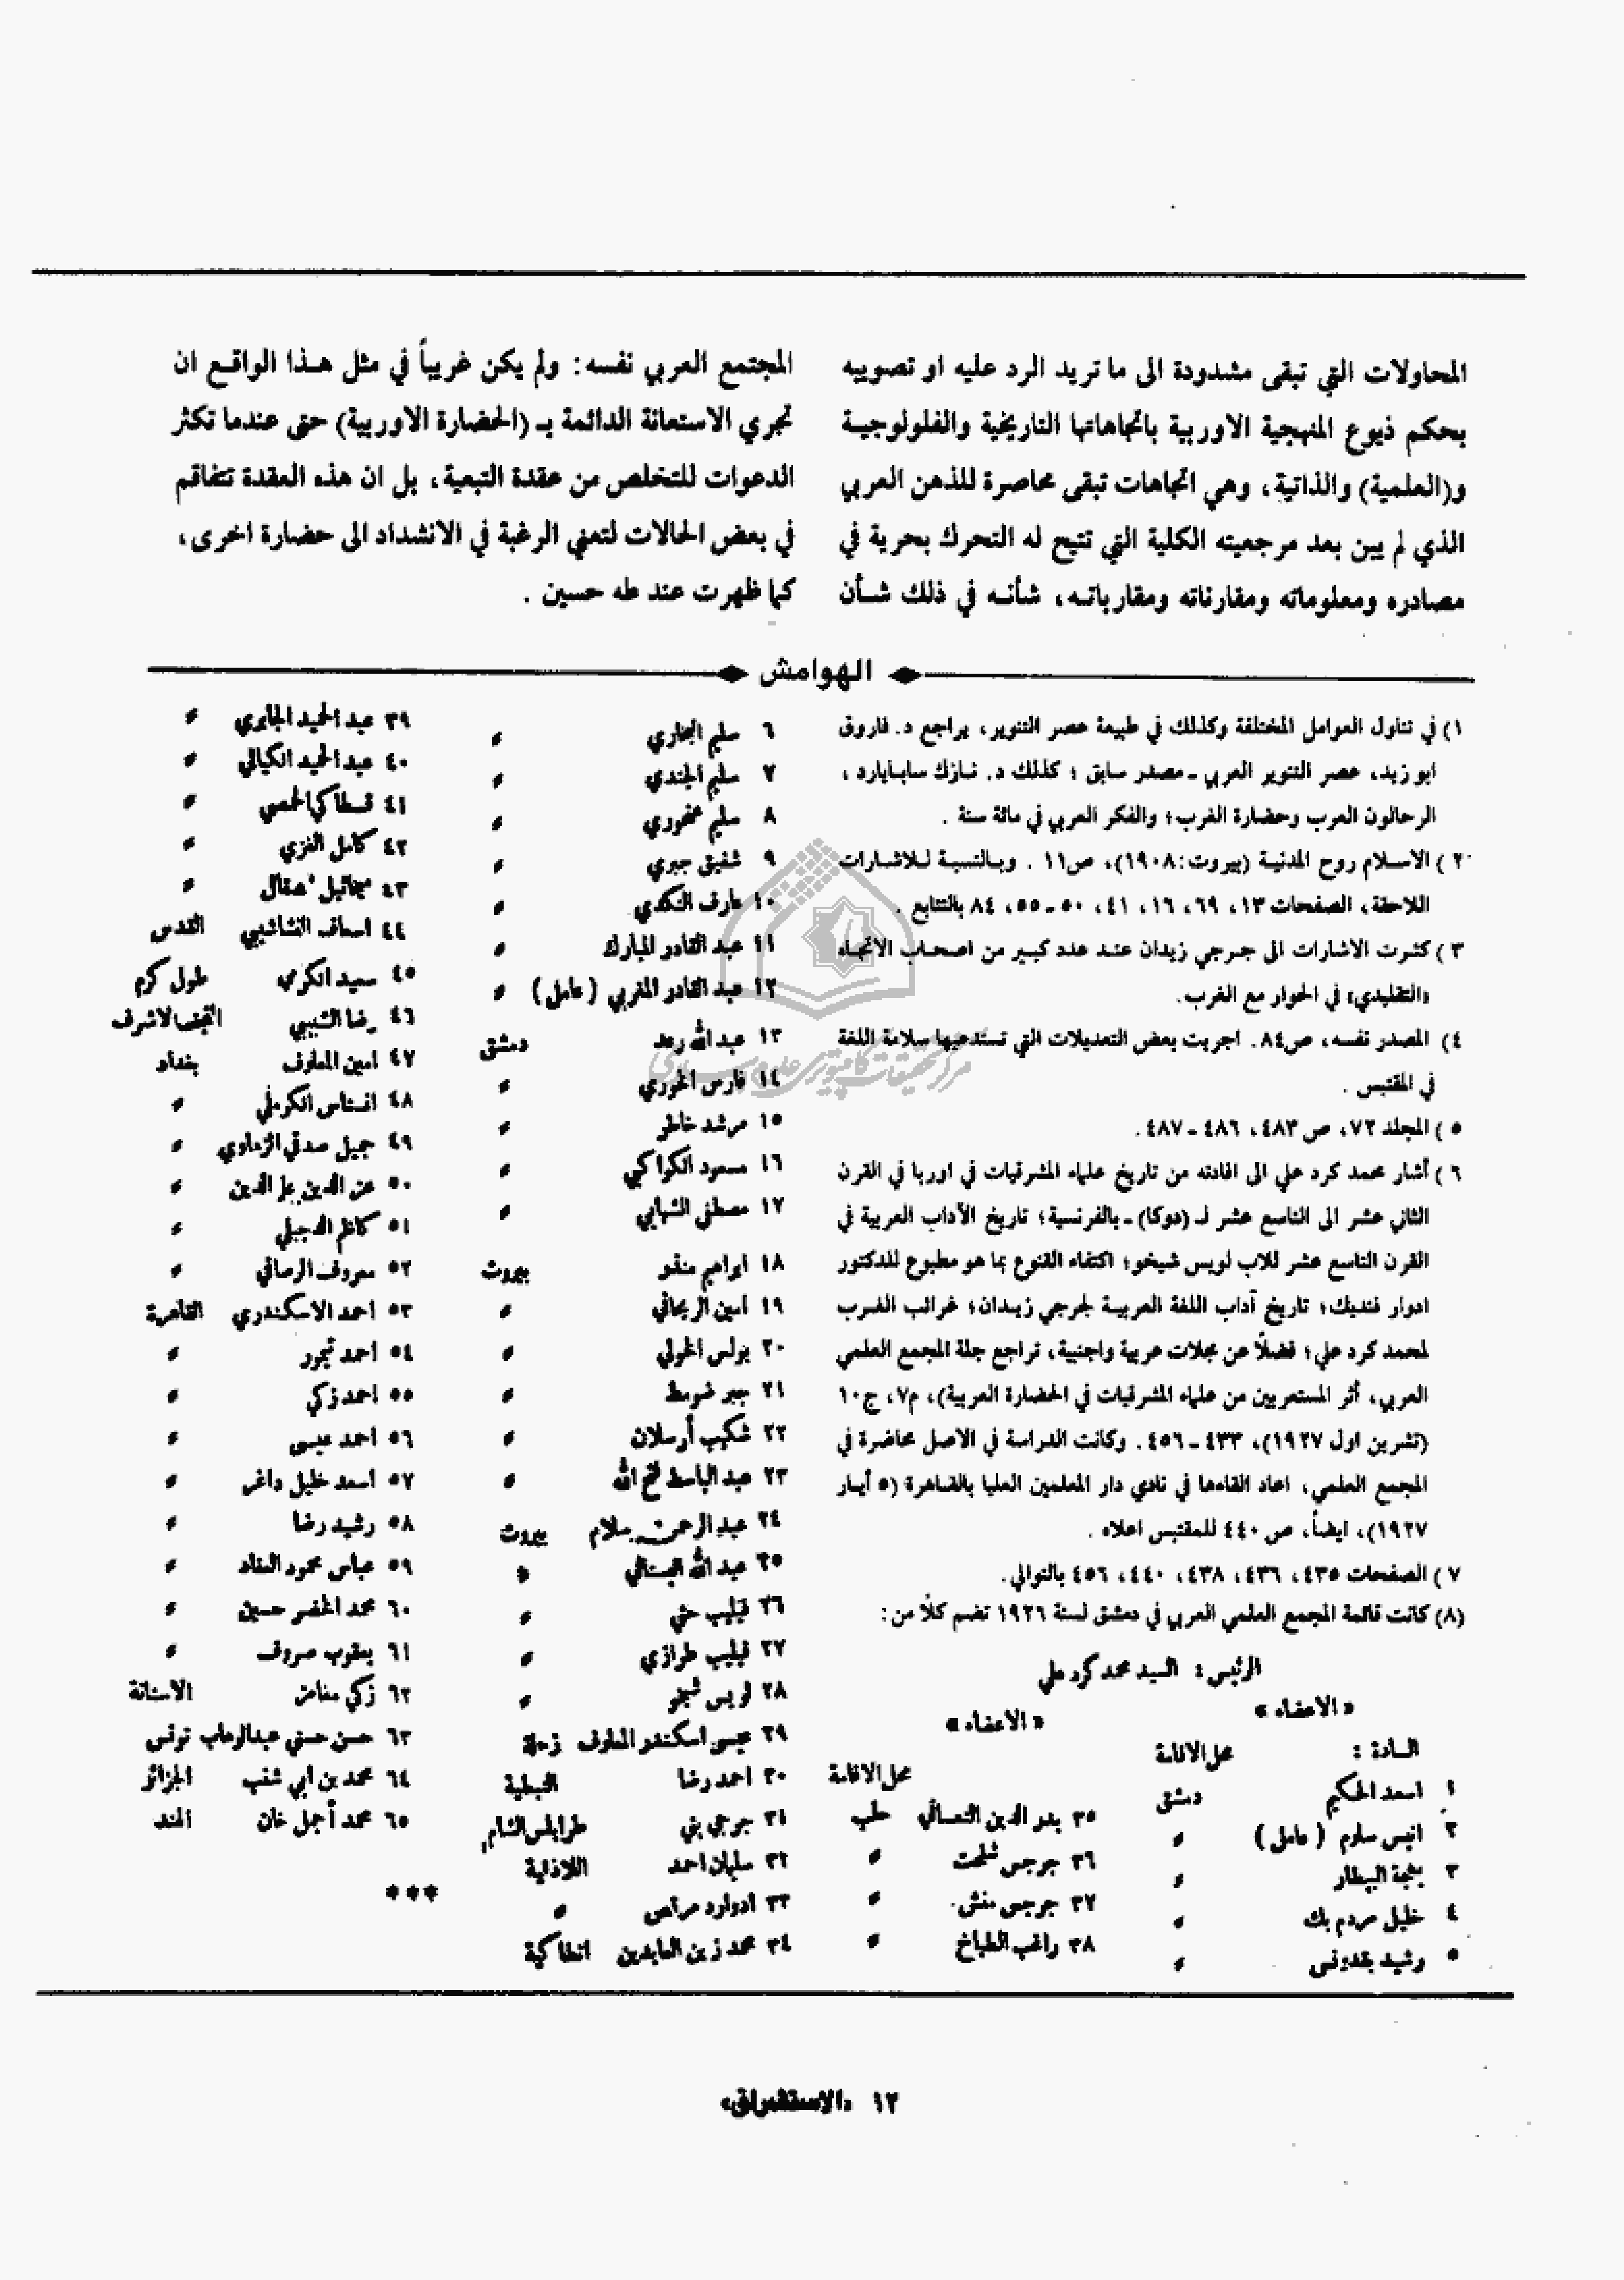 المحاولات التي تبقى مشدودة الى ما تريد الرد عليه او تصويبه
بحكم ذيوع المنهجية الاوربية باتجاهاتها التاريخية والفلولوجية
و(العلمية) والذاتية، وهي اتجاهات تبقى محاصرة للذهن العربي
الذي لم يبن بعد مرجعيته الكلية التي تتيح له التحرك بحرية في
مصادره ومعلوماته ومقارناته ومقارباته، شأنه في ذلك شأن
المجتمع العربي نفسه: ولم يكن غريباً في مثل هذا الواقع ان
تجري الاستعانة الدائمة بـ (الحضارة الاوربية) حتى عندما تكثر
الدعوات للتخلص من عقدة التبعية، بل ان هذه العقدة تتفاقم
في بعض الحالات لتعني الرغبة في الانشداد الى حضارة اخرى،
كما ظهرت عند طه حسين .
الهوامش
١) في تناول العوامل المختلفة وكذلك في طبيعة عصر التنوير، يراجع د. فاروق
ابو زيد، عصر التنوير العربي - مصدر سابق ؛ كذلك د. نازك سابايارد ،
الرحالون العرب وحضارة الغرب؛ والفكر العربي في مائة سنة .
٢) الاسلام روح المدنية (بيروت: ١٩٠٨)، ص١١ . وبالنسبة للاشارات
اللاحقة، الصفحات ١٣، ٦٩، ١٦، ٤١، ٥٠ - ٥٥، ٨٤ بالتتابع .
٣) كثرت الاشارات الى جرجي زيدان عند عدد كبير من اصحاب الاتجاه
«التقليدي» في الحوار مع الغرب.
٤) المصدر نفسه، ص٨٤. اجريت بعض التعديلات التي تستدعيها سلامة اللغة
في المقتبس .
٥) المجلد ٧٢، ص ٤٨٣، ٤٨٦ - ٤٨٧.
٦) أشار محمد كرد علي الى افادته من تاريخ علماء المشرقيات في اوربا في القرن
الثاني عشر الى التاسع عشر لـ (دوكا) - بالفرنسية؛ تاريخ الآداب العربية في
القرن التاسع عشر للاب لويس شيخو؛ اكتفاء القنوع بما هو مطبوع للدكتور
ادوار فنديك؛ تاريخ آداب اللغة العربية لجرجي زيدان؛ غرائب الغرب
لمحمد كرد علي؛ فضلاً عن مجلات عربية واجنبية، تراجع جلة المجمع العلمي
العربي، أثر المستعربين من علماء المشرقيات في الحضارة العربية)، م٧، ج١٠
(تشرين اول ١٩٢٧)، ٤٣٣ - ٤٥٦. وكانت الدراسة في الاصل محاضرة في
المجمع العلمي، اعاد القاءها في نادي دار المعلمين العليا بالقاهرة (٥ أيار
١٩٢٧)، ايضاً، ص ٤٤٠ للمقتبس اعلاه .
٧) الصفحات ٤٣٥، ٤٣٦، ٤٣٨، ٤٤٠، ٤٥٦ بالتوالي.
(٨) كانت قائمة المجمع العلمي العربي في دمشق لسنة ١٩٢٦ تضم كلاً من:
الرئيس : السيد محمد كرد علي
« الاعضاء »
السادة : محل الاقامة
١ اسعد الحكيم دمشق
٢ انيس سلوم (عامل) ״
٣ بهجة البيطار ״
٤ خليل مردم بك ״
٥ رشيد بقدونس ״
« الاعضاء »
محل الاقامة
٣٥ بدر الدين النعساني حلب
٣٦ جرجس شلحت ״
٣٧ جرجس منش ״
٣٨ راغب الطباخ ״
٦ سليم البخاري ״
٧ سليم الجندي ״
٨ سليم عنحوري ״
٩ شفيق جبري ״
١٠ عارف النكدي ״
١١ عبد القادر المبارك ״
١٢ عبد القادر المغربي (عامل) ״
١٣ عبد الله رعد دمشق
١٤ فارس الخوري ״
١٥ مرشد خاطر ״
١٦ مسعود الكواكبي ״
١٧ مصطفى الشهابي ״
١٨ ابراهيم منذر بيروت
١٩ امين الريحاني ״
٢٠ بولس الخولي ״
٢١ جبر ضومط ״
٢٢ شكيب أرسلان ״
٢٣ عبد الباسط فتح الله ״
٢٤ عبد الرحمن سلام بيروت
٢٥ عبد الله البستاني ״
٢٦ فيليب حتي ״
٢٧ فيليب طرازي ״
٢٨ لويس شيخو ״
٢٩ عيسى اسكندر المعلوف زحلة
٣٠ احمد رضا النبطية
٣١ جرجي يني طرابلس الشام
٣٢ سليمان احمد اللاذقية
٣٣ ادوارد مرقص ״
٣٤ محمد زين العابدين انطاكية
٣٩ عبد الحميد الجابري ״
٤٠ عبد الحميد الكيالي ״
٤١ قسطاكي الحمصي ״
٤٢ كامل الغزي ״
٤٣ ميخائيل الصقال ״
٤٤ اسعاف النشاشيبي القدس
٤٥ سعيد الكرمي طول كرم
٤٦ رضا الشبيبي النجف الاشرف
٤٧ امين المعلوف بغداد
٤٨ انستاس الكرملي ״
٤٩ جميل صدقي الزهاوي ״
٥٠ عز الدين علم الدين ״
٥١ كاظم الدجيلي ״
٥٢ معروف الرصافي ״
٥٣ احمد الاسكندري القاهرة
٥٤ احمد تيمور ״
٥٥ احمد زكي ״
٥٦ احمد عيسى ״
٥٧ اسعد خليل داغر ״
٥٨ رشيد رضا ״
٥٩ عباس محمود العقاد ״
٦٠ محمد الخضر حسين ״
٦١ يعقوب صروف ״
٦٢ زكي مغامز الاستانة
٦٣ حسن حسني عبدالوهاب تونس
٦٤ محمد بن ابي شنب الجزائر
٦٥ محمد أجمل خان الهند
***
١٢ «الاستشراق»